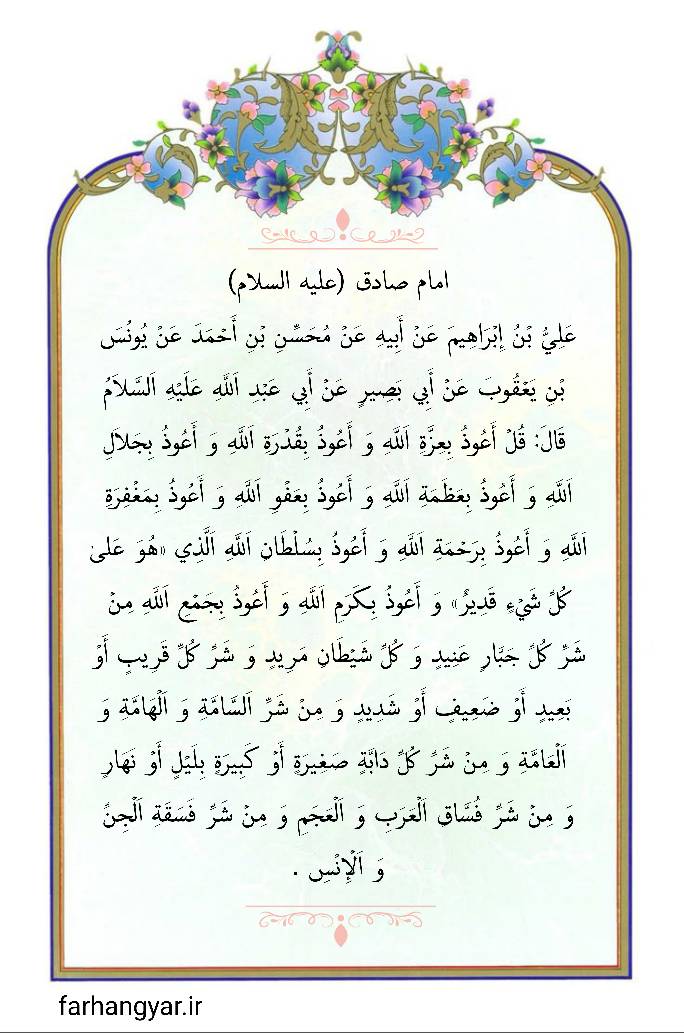 امام صادق (علیه السلام)
عَلِيُّ بْنُ إِبْرَاهِيمَ عَنْ أَبِيهِ عَنْ مُحَسِّنِ بْنِ أَحْمَدَ عَنْ يُونُسَ
بْنِ يَعْقُوبَ عَنْ أَبِي بَصِيرٍ عَنْ أَبِي عَبْدِ اَللَّهِ عَلَيْهِ اَلسَّلاَمُ
قَالَ: قُلْ أَعُوذُ بِعِزَّةِ اَللَّهِ وَ أَعُوذُ بِقُدْرَةِ اَللَّهِ وَ أَعُوذُ بِجَلاَلِ
اَللَّهِ وَ أَعُوذُ بِعَظَمَةِ اَللَّهِ وَ أَعُوذُ بِعَفْوِ اَللَّهِ وَ أَعُوذُ بِمَغْفِرَةِ
اَللَّهِ وَ أَعُوذُ بِرَحْمَةِ اَللَّهِ وَ أَعُوذُ بِسُلْطَانِ اَللَّهِ اَلَّذِي «هُوَ عَلىٰ
كُلِّ شَيْءٍ قَدِيرٌ» وَ أَعُوذُ بِكَرَمِ اَللَّهِ وَ أَعُوذُ بِجَمْعِ اَللَّهِ مِنْ
شَرِّ كُلِّ جَبَّارٍ عَنِيدٍ وَ كُلِّ شَيْطَانٍ مَرِيدٍ وَ شَرِّ كُلِّ قَرِيبٍ أَوْ
بَعِيدٍ أَوْ ضَعِيفٍ أَوْ شَدِيدٍ وَ مِنْ شَرِّ اَلسَّامَّةِ وَ اَلْهَامَّةِ وَ
اَلْعَامَّةِ وَ مِنْ شَرِّ كُلِّ دَابَّةٍ صَغِيرَةٍ أَوْ كَبِيرَةٍ بِلَيْلٍ أَوْ نَهَارٍ
وَ مِنْ شَرِّ فُسَّاقِ اَلْعَرَبِ وَ اَلْعَجَمِ وَ مِنْ شَرِّ فَسَقَةِ اَلْجِنِّ
وَ اَلْإِنْسِ .
farhangyar.ir